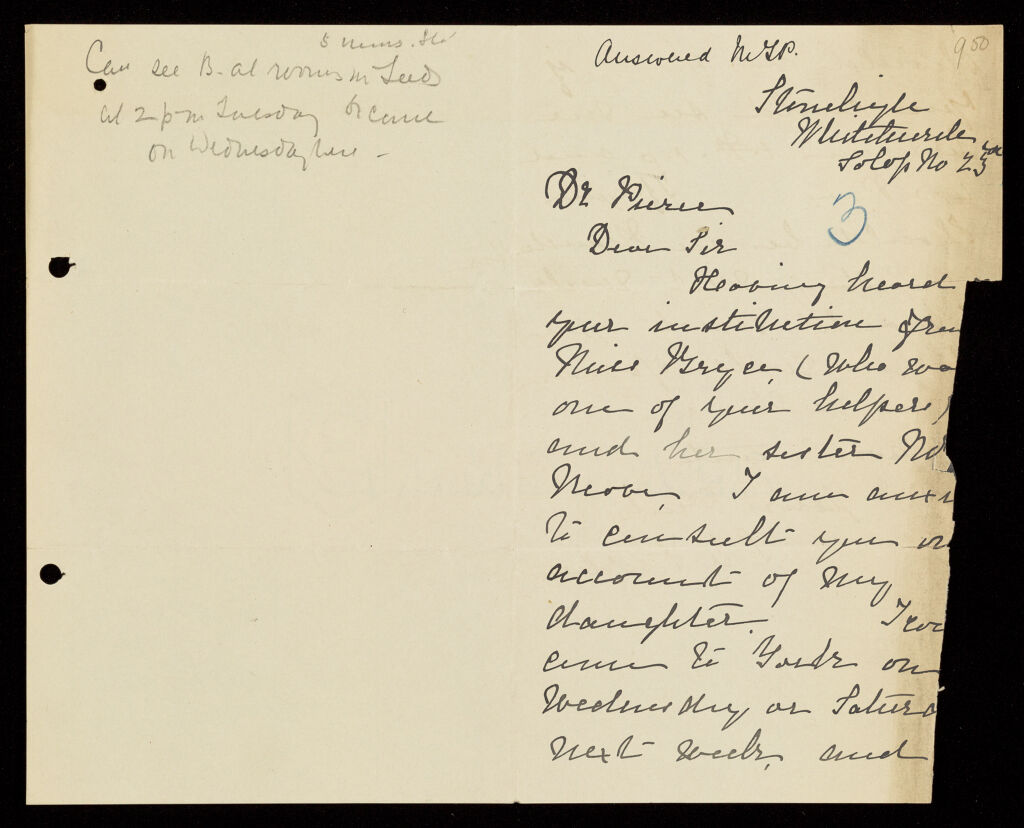 5 mins. Stn
Can see B. at rooms in Leeds
at 2 pm Tuesday or come
on Wednesday here -
Answered
950
Stoneleigh
Whitchurch
Salop No 23rd
3
Dr Pierce
Dear Sir
Having heard
your institution from
Miss Bryce (who wa
one of your helpers)
and her sister
I am anxi
to consult you on
account of my
daughter. I wo
come to York on
Wednesday or Saturd
next week, and